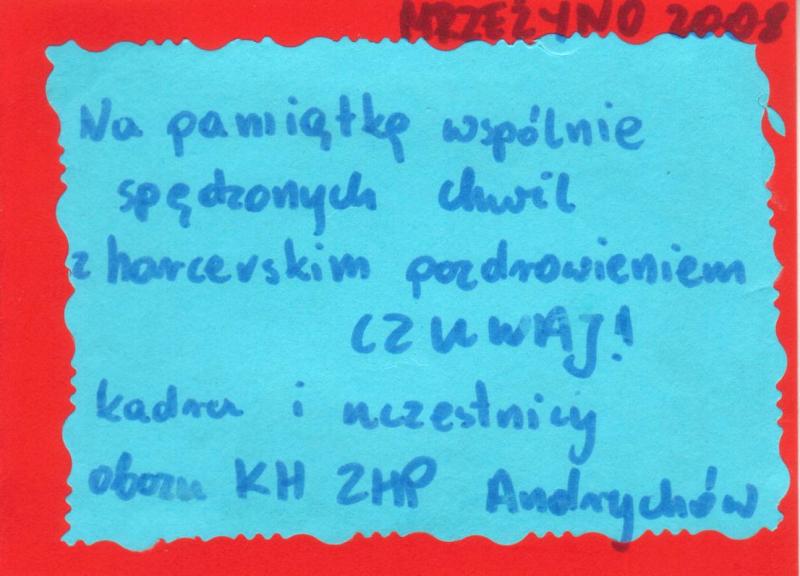 MRZEŻYNO 2008
Na pamiątkę wspólnie
spędzonych chwil
z harcerskim pozdrowieniem
CZUWAJ!
kadra i uczestnicy
obozu KH ZHP Andrychów